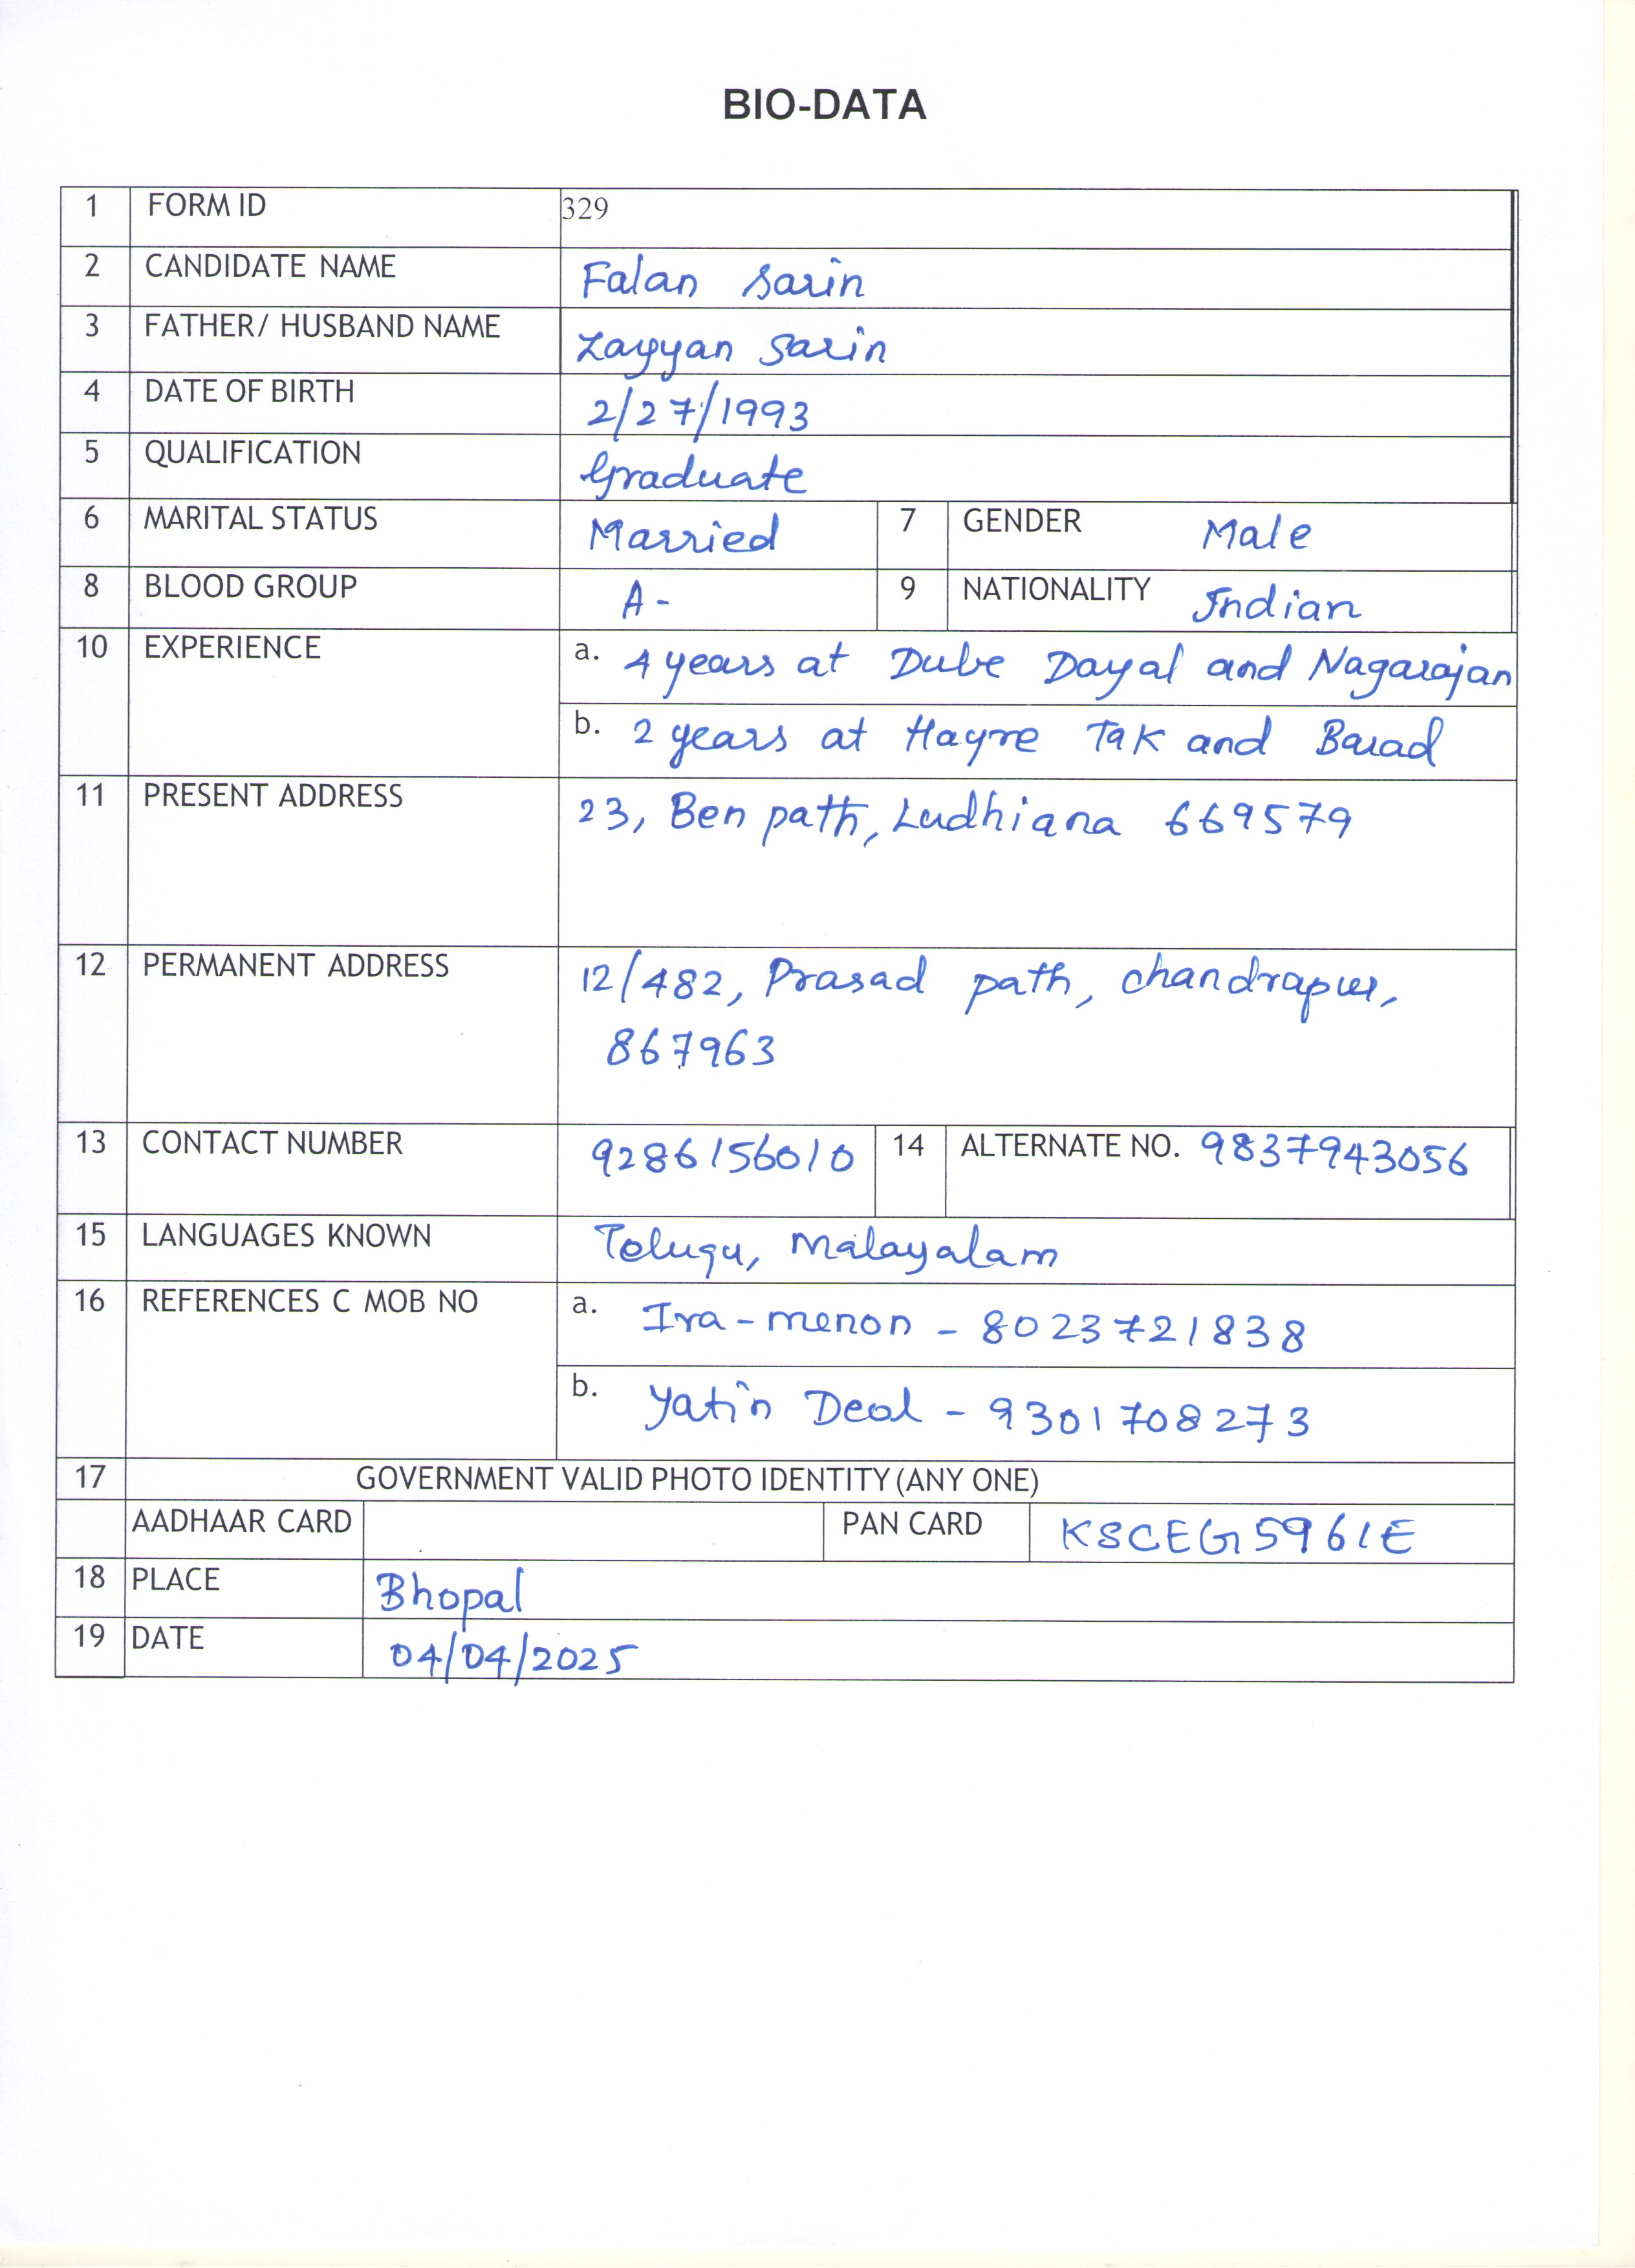 BIO-DATA
1 FORM ID 329
2 CANDIDATE NAME Falan Sarin
3 FATHER/ HUSBAND NAME Zayyan Sarin
4 DATE OF BIRTH 2/27/1993
5 QUALIFICATION Graduate
6 MARITAL STATUS Married 7 GENDER Male
8 BLOOD GROUP A- 9 NATIONALITY Indian
10 EXPERIENCE a. 4 years at Dube Dayal and Nagarajan
b. 2 years at Hayre Tak and Barad
11 PRESENT ADDRESS 23, Ben path, Ludhiana 669579
12 PERMANENT ADDRESS 12/482, Prasad path, chandrapur,
867963
13 CONTACT NUMBER 9286156010 14 ALTERNATE NO. 9837943056
15 LANGUAGES KNOWN Telugu, Malayalam
16 REFERENCES C MOB NO a. Ira-menon - 8023721838
b. Yatin Deol - 9301708273
17 GOVERNMENT VALID PHOTO IDENTITY (ANY ONE)
AADHAAR CARD PAN CARD KSCEG5961E
18 PLACE Bhopal
19 DATE 04/04/2025